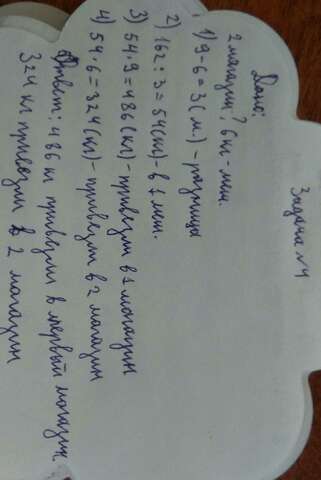 Задача №4
Дано:
2 магазин, ? 6кг - меш.
1) 9-6=3(м.) - разница
2) 162:3=54(кг) - в 1 меш.
3) 54·9=486(кг) - привезли в 1 магазин
4) 54·6=324(кг) - привезли в 2 магазин
Ответ: 486 кг привезли в первый магазин
324 кг привезли в 2 магазин